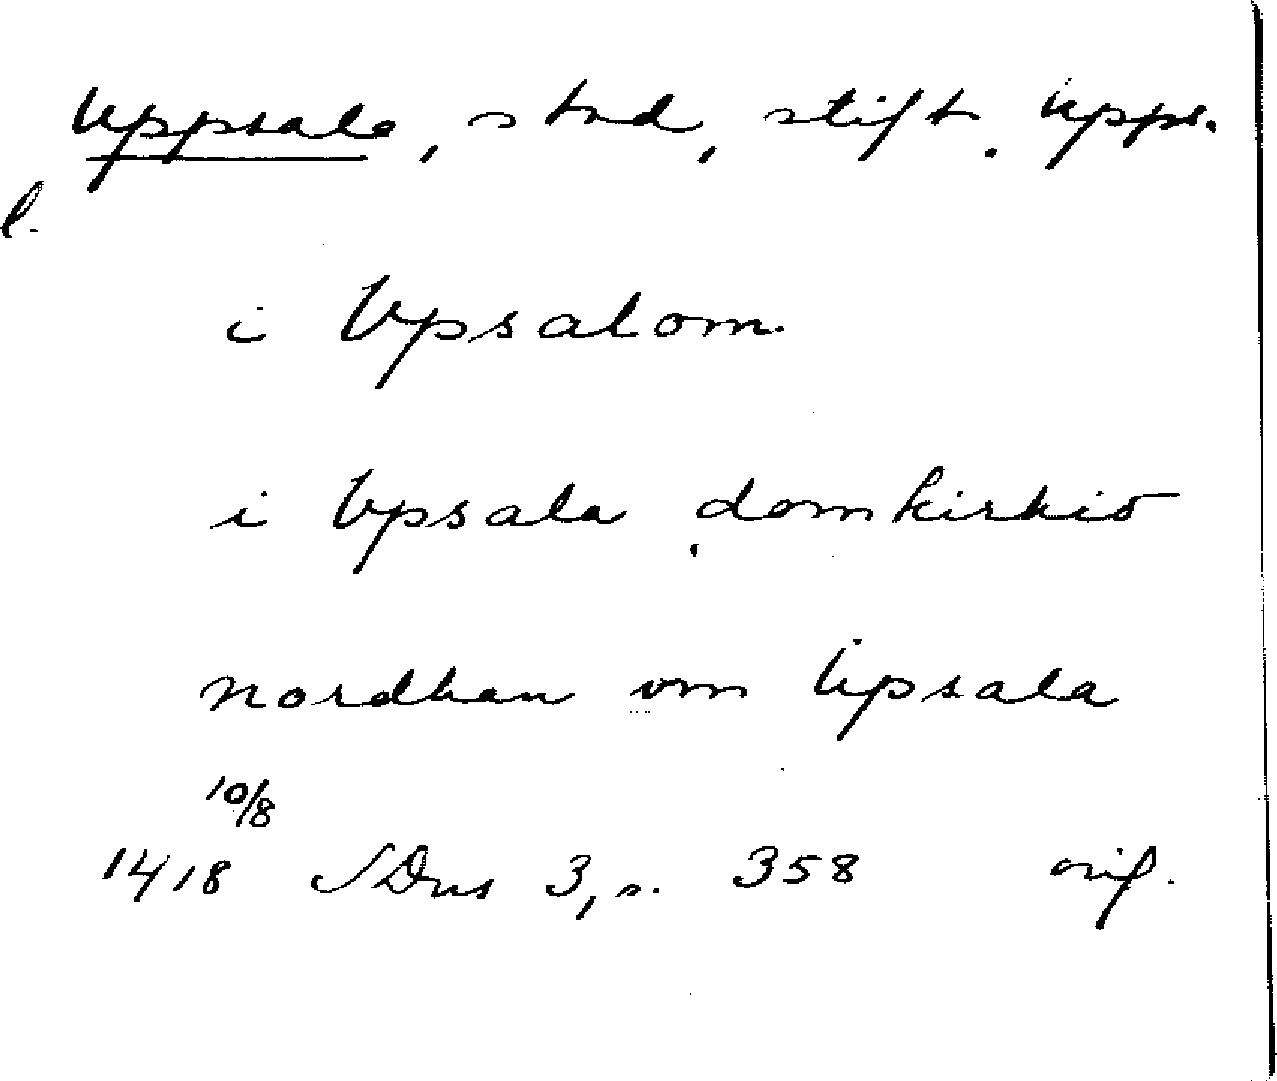 Uppsala, stad, stift. Upps.
l.
i Vpsalom
i Vpsala domkirkio
nordhan vm Upsala
10/8
1418 SDns 3, s. 358 orig.